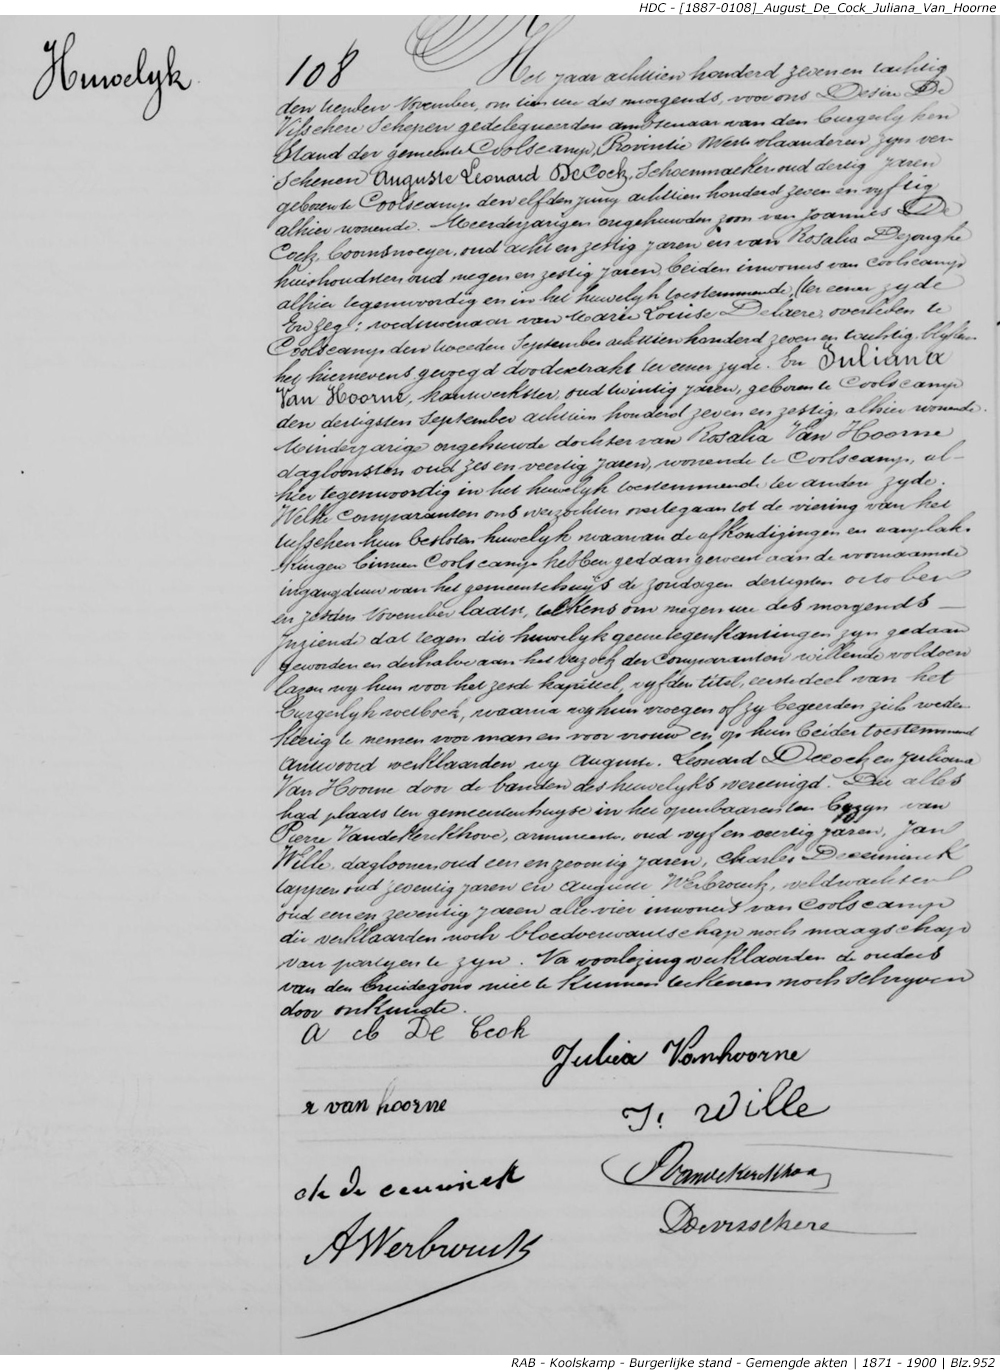 HDC - [1887-0108]_August_De_Cock_Juliana_Van_Hoorne
Huwelyk
108
Het jaar achttien honderd zeven en tachtig
den tienden November, om tien ure des morgends, voor ons Desiré De
Visschere Schepen gedelegueerden ambtenaar van den burgerlyken
Stand der gemeente Coolscamp, Provintie West vlaanderen zyn ver-
schenen Auguste Leonard De Cock, Schoenmaeker oud dertig jaren
geboren te Coolscamp den elfden juny achttien honderd zeven en vyftig
alhier wonende. Meerderjarigen ongehuwden zoon van Joannes De
Cock, boomsnoeyer, oud acht en zestig jaren en van Rosalia Dejonghe
huishoudster oud negen en zestig jaren beiden inwoners van Coolscamp
alhier tegenwoordig en in het huwelyk toestemmende, ter eener zyde
En zeg: weduwenaar van Marie Louise Delaere, overleden te
Coolscamp den tweeden September achttien honderd zeven en tachtig blyken
het hiernevens gevoegd doodextrakt ter eener zyde. En Juliana
Van Hoorne, kantwerkster, oud twintig jaren, geboren te Coolscamp
den dertigsten September achttien honderd zeven en zestig, alhier wonende.
Minderjarige ongehuwde dochter van Rosalia Van Hoorne
dagloonster oud zes en veertig jaren, wonende te Coolscamp, al-
hier tegenwoordig in het huwelyk toestemmende ter andere zyde.
Welke comparanten ons verzochten overtegaan tot de viering van het
tusschen hun besloten huwelyk waarvan de afkondigingen en aanplak-
kingen binnen Coolscamp hebben gedaan geweest aan de voornaamste
ingangdeur van het gemeentehuijs de zondagen dertigsten october
en zesden November laatst, telkens om negen ure des morgends —
Inziende dat tegen dit huwelyk geene tegenkantingen zyn gedaan
geworden en derhalve aan het verzoek der comparanten willende voldoen
lazen wy hun voor het zesde kapittel, vyfden titel, eerste deel van het
burgerlyk wetboek, waarna wy hun vroegen of zy begeerden zich weder-
keerig te nemen voor man en voor vrouw en op hun beider toestemmend
antwoord verklaarden wy Auguste. Leonard Decock en Juliana
Van Hoorne door de banden des huwelyks vereenigd. Dit alles
had plaats ten gemeentenhuyse in het openbaar en ten byzyn van
Pierre Vandekerckhove, oud vyf en veertig jaren, Jan
Wille, dagloonder oud een en zeventig jaren, Charles Deceuninck
tapper oud zeventig jaren en Auguste Werbrouck, veldwachter
oud een en zeventig jaren alle vier inwoners van Coolscamp
die verklaarden noch bloedverwantschap noch maagschap
van partyen te zyn. Na voorlezing verklaarden de ouders
van den bruidegom niet te kunnen teekenen noch schryven
door onkunde.
A L De Cock
Julia Vanhoorne
r van hoorne
J. Wille
ch de ceuninck
P Vandekerckhove
Devisschere
A Werbrouck
RAB - Koolskamp - Burgerlijke stand - Gemengde akten | 1871 - 1900 | Blz.952